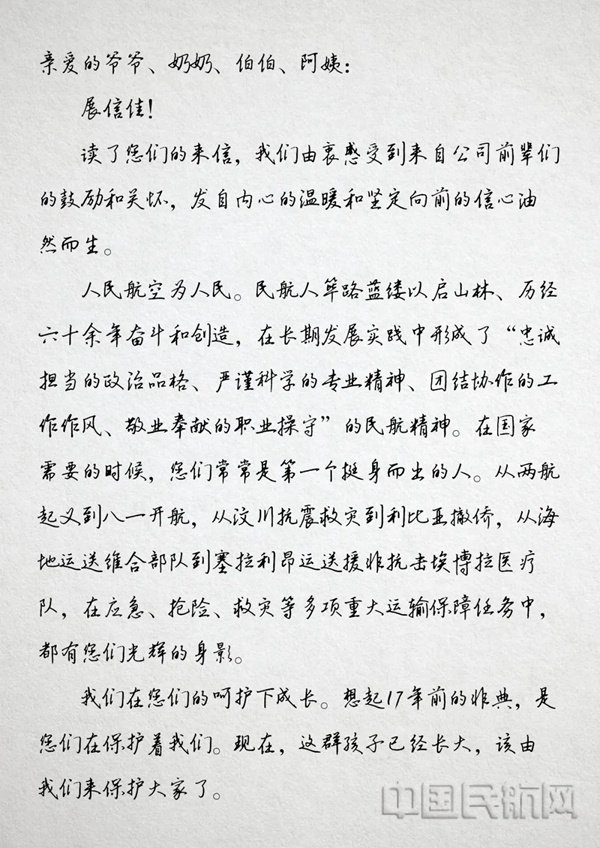 亲爱的爷爷、奶奶、伯伯、阿姨：
展信佳！
读了您们的来信，我们由衷感受到来自公司前辈们
的鼓励和关怀，发自内心的温暖和坚定向前的信心油
然而生。
人民航空为人民。民航人筚路蓝缕以启山林、历经
六十余年奋斗和创造，在长期发展实践中形成了“忠诚
担当的政治品格、严谨科学的专业精神、团结协作的工
作作风、敬业奉献的职业操守”的民航精神。在国家
需要的时候，您们常常是第一个挺身而出的人。从两航
起义到八一开航，从汶川抗震救灾到利比亚撤侨，从海
地运送维合部队到塞拉利昂运送援非抗击埃博拉医疗
队，在应急、抢险、救灾等多项重大运输保障任务中，
都有您们光辉的身影。
我们在您们的呵护下成长。想起17年前的非典，是
您们在保护着我们。现在，这群孩子已经长大，该由
我们来保护大家了。
中国民航网